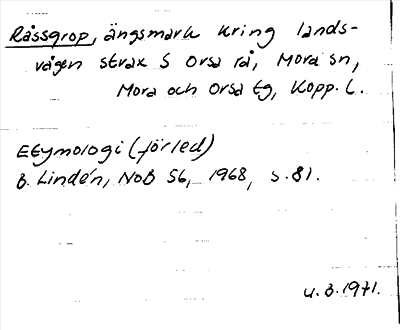 Råssgrop, ängsmark kring lands-
vägen strax S Orsa rå, Mora sn,
Mora och Orsa tg, Kopp. L.
Etymologi (förled)
B. Lindén, NoB 56, 1968, s. 81.
U. B. 1971.